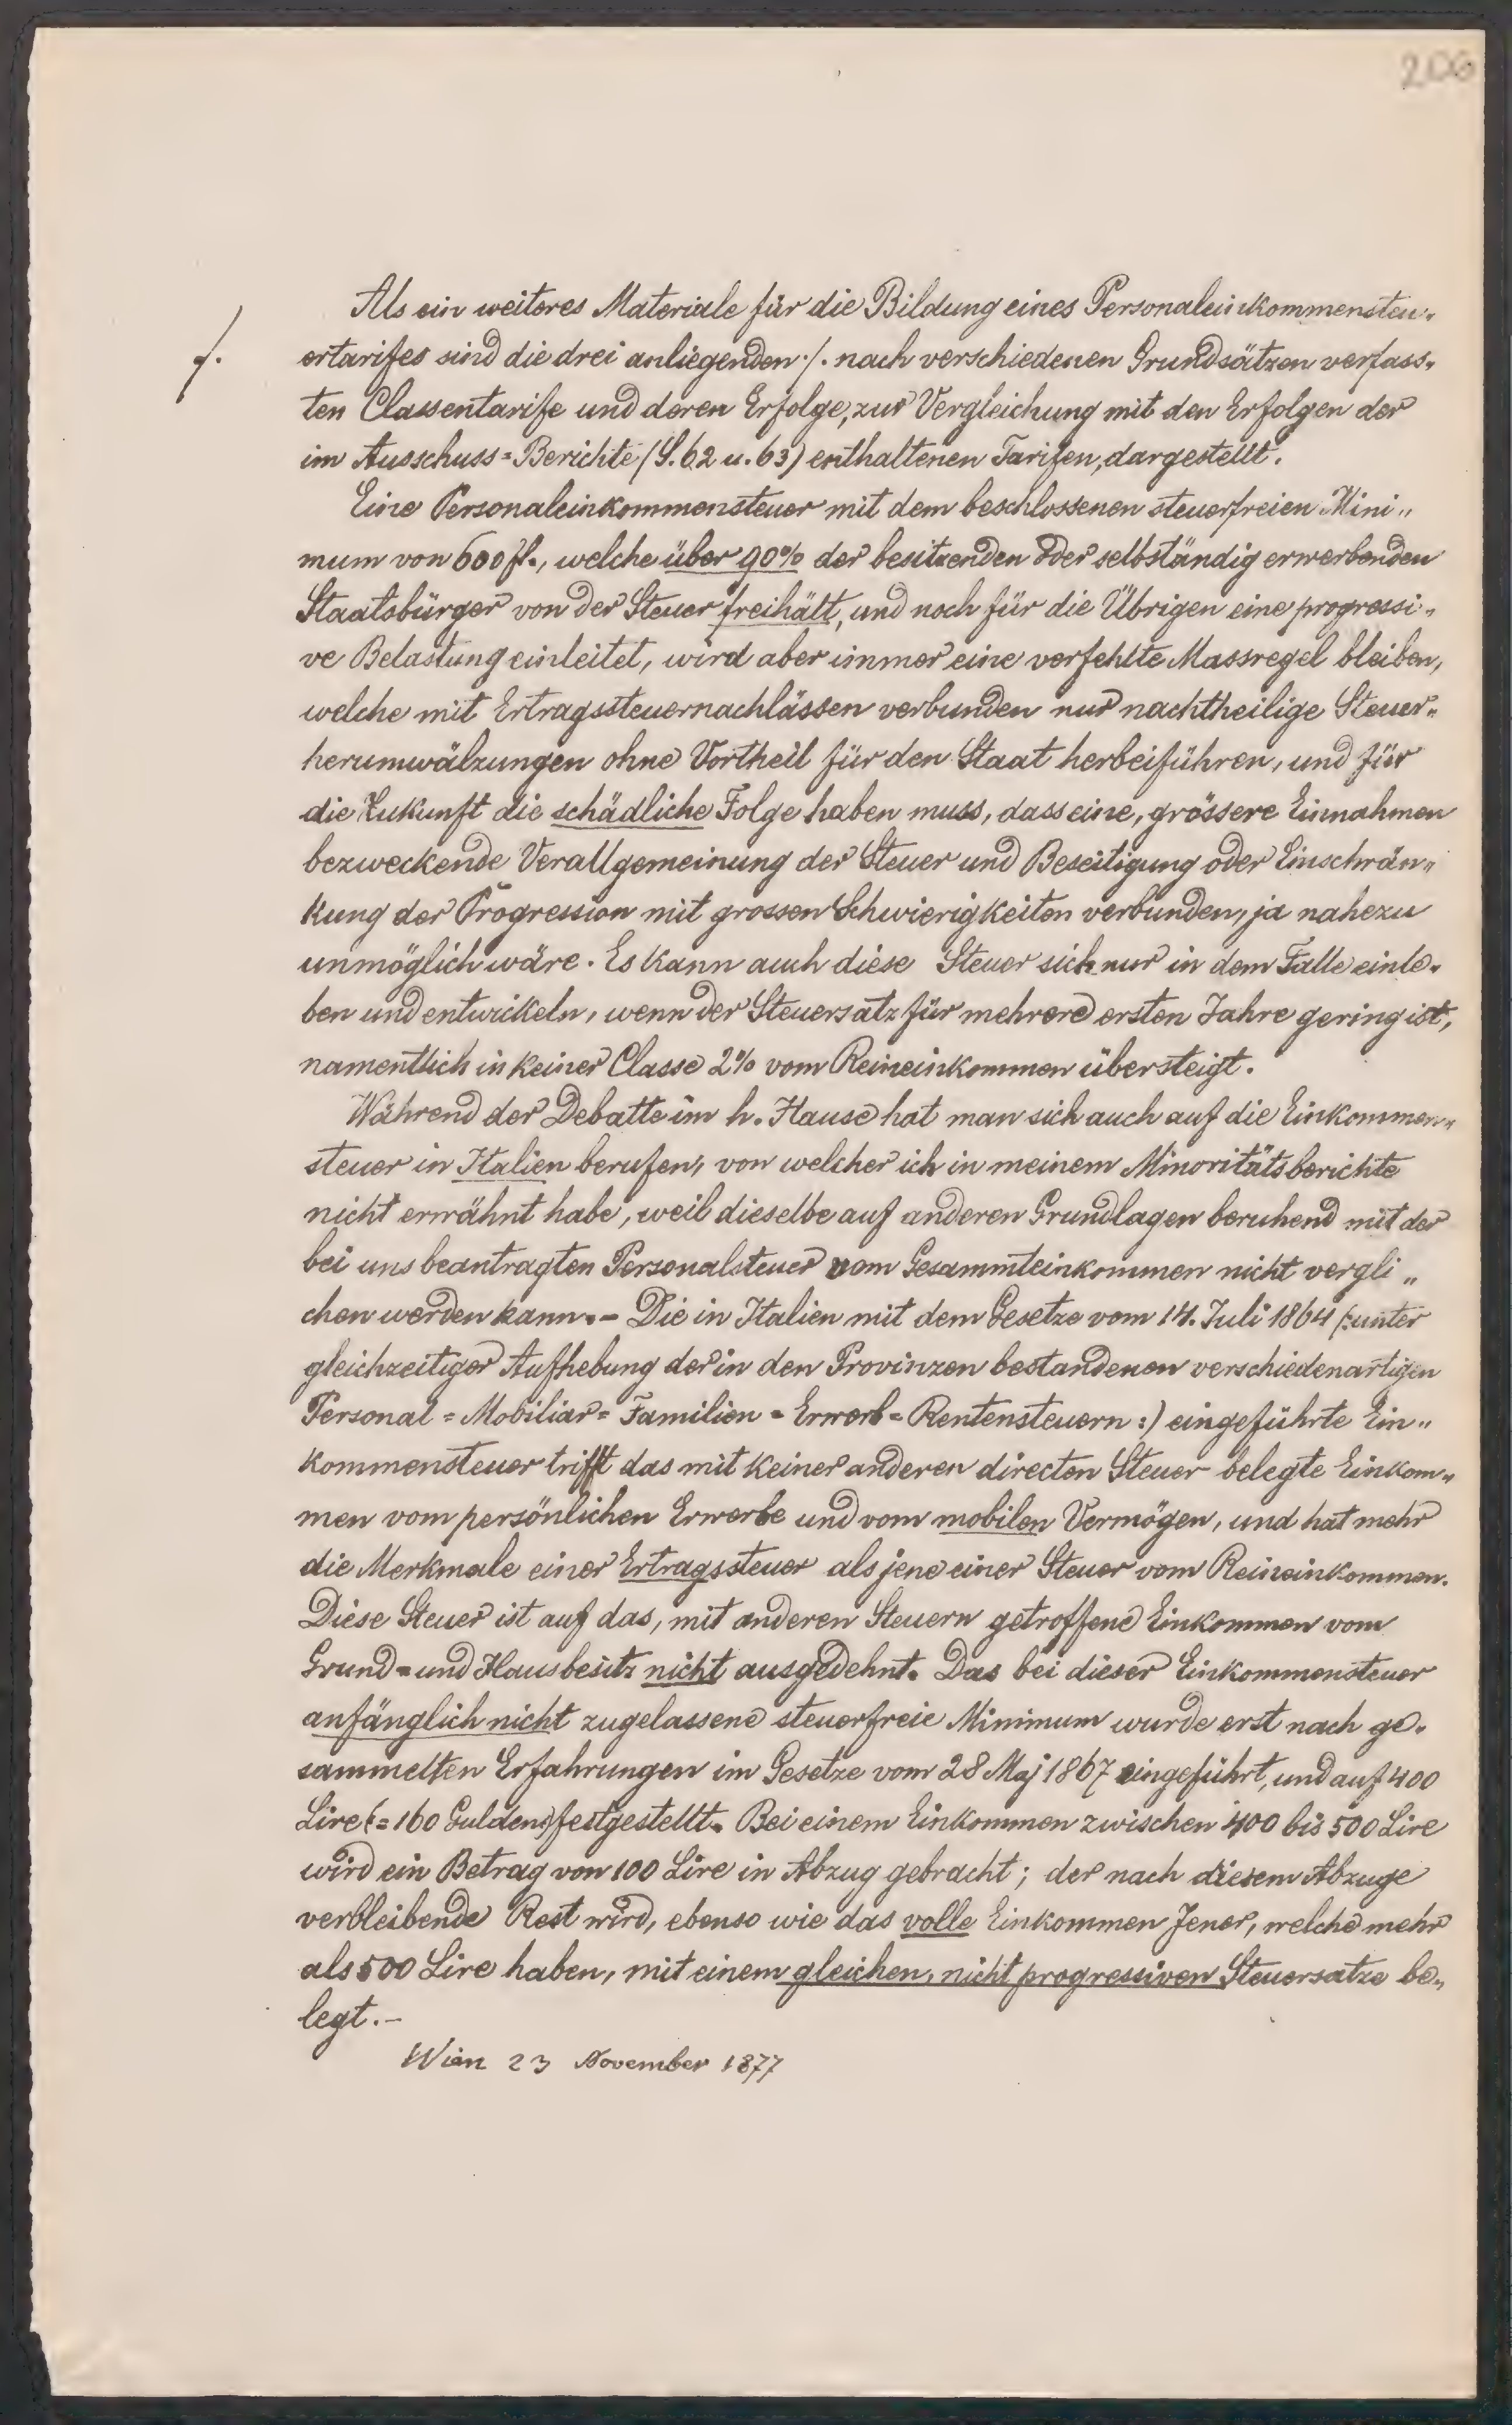 206
Als ein weiteres Materiale für die Bildung eines Personaleinkommensteu„
./. ertarifes sind die drei anliegenden ./. nach verschiedenen Grundsätzen verfass„
ten Classentarife und deren Erfolge, zur Vergleichung mit den Erfolgen der
im Ausschuss=Berichte (S. 62 u. 63) enthaltenen Tarifen, dargestellt.
Eine Personaleinkommensteuer mit dem beschlossenen steuerfreien Mini„
mum von 600 fl., welche über 90% der besitzenden oder selbständig erwerbenden
Staatsbürger von der Steuer freihält, und noch für die Übrigen eine progressi„
ve Belastung einleitet, wird aber immer eine verfehlte Massregel bleiben,
welche mit Ertragssteuernachlässen verbunden nur nachtheilige Steuer„
herumwälzungen ohne Vortheil für den Staat herbeiführen, und für
die Zukunft die schädliche Folge haben muss, dass eine, grössere Einnahmen
bezweckende Verallgemeinung der Steuer und Beseitigung oder Einschrän„
kung der Progression mit grossen Schwierigkeiten verbunden, ja nahezu
unmöglich wäre. Es kann auch diese Steuer sich nur in dem Falle einle„
ben und entwickeln, wenn der Steuersatz für mehrere ersten Jahre gering ist,
namentlich in keiner Classe 2% vom Reineinkommen übersteigt.
Während der Debatte im h. Hause hat man sich auch auf die Einkommen„
steuer in Italien berufen, von welcher ich in meinem Minoritätsberichte
nicht erwähnt habe, weil dieselbe auf anderen Grundlagen beruhend mit der
bei uns beantragten Personalsteuer vom Gesammteinkommen nicht vergli„
chen werden kann. - Die in Italien mit dem Gesetze vom 14. Juli 1864 (:unter
gleichzeitiger Aufhebung der in den Provinzen bestandenen verschiedenartigen
Personal = Mobiliar = Familien = Erwerb = Rentensteuern :) eingeführte Ein„
kommensteuer trifft das mit keiner anderen directen Steuer belegte Einkom„
men vom persönlichen Erwerbe und vom mobilen Vermögen, und hat mehr
die Merkmale einer Ertragssteuer als jene einer Steuer vom Reineinkommen.
Diese Steuer ist auf das, mit anderen Steuern getroffene Einkommen vom
Grund= und Hausbesitz nicht ausgedehnt. Das bei dieser Einkommensteuer
anfänglich nicht zugelassene steuerfreie Minimum wurde erst nach ge„
sammelten Erfahrungen im Gesetze vom 28 Maj 1867 eingeführt, und auf 400
Lire (= 160 Gulden) festgestellt. Bei einem Einkommen zwischen 400 bis 500 Lire
wird ein Betrag von 100 Lire in Abzug gebracht; der nach diesem Abzuge
verbleibende Rest wird, ebenso wie das volle Einkommen Jener, welche mehr
als 500 Lire haben, mit einem gleichen, nicht progressiven Steuersatze be„
legt. -
Wien 23 November 1877